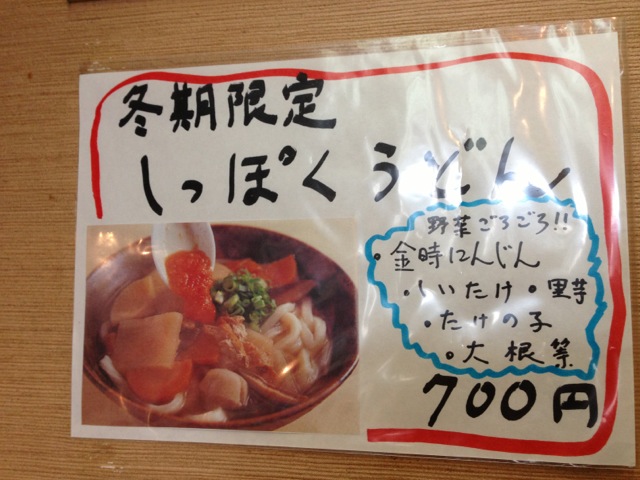 冬期限定
しっぽくうどん
野菜ごろごろ!!
・金時にんじん
・しいたけ・里芋
・たけの子
・大根等
700円